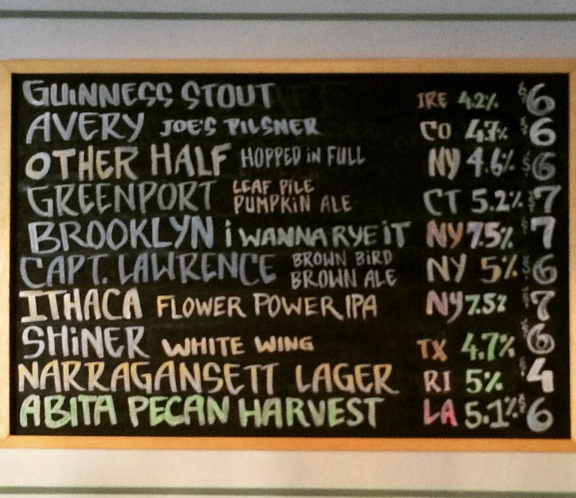 GUINNESS STOUT IRE 4.2% $6
AVERY JOE'S PILSNER CO 4.7% $6
OTHER HALF HOPPED IN FULL NY 4.6% $6
GREENPORT LEAF PILE PUMPKIN ALE CT 5.2% $7
BROOKLYN I WANNA RYE IT NY 7.5% $7
CAPT. LAWRENCE BROWN BIRD BROWN ALE NY 5% $6
ITHACA FLOWER POWER IPA NY 7.5% $7
SHINER WHITE WING TX 4.7% $6
NARRAGANSETT LAGER RI 5% $4
ABITA PECAN HARVEST LA 5.1% $6